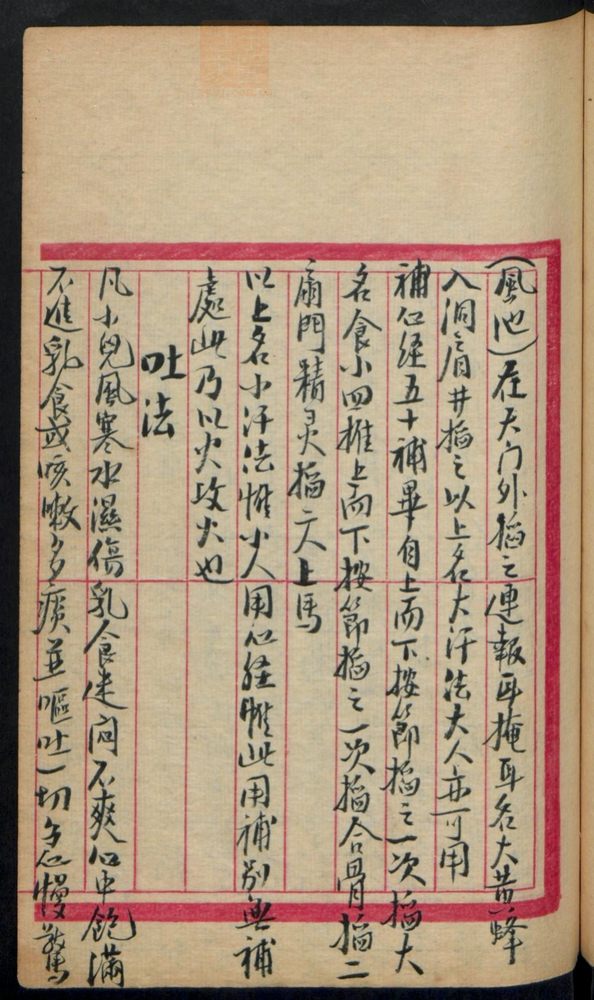 (風池)在天门外搯之連報耳掩耳名大黄蜂
入洞之肩井搯之以上名大汗法大人亦可用
補心经五十補畢自上而下按節搯之一次搯大
名食小四椎上而下按節搯之一次搯合骨搯二
扇門精灵搯二人上馬
以上名小汗法惟小人用心経惟此用補别無補
處此乃以火攻火也
吐法
凡小兒風寒水濕傷乳食迷闷不爽心中飽滿
不進乳食或咳嗽多痰並嘔吐一切急慢驚